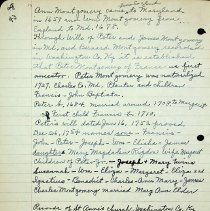 Ann Montgomery came to Maryland
in 1657 and
England to Md. 1677.
Through Wills of Peter and James Montgomery
in Md., and Bernard Montgomery recorded
in Washington Co. Ky. it is established
that Peter Montgomery of France is first
ancestor. Peter Montgomery was naturalized
1727, Charles Co. Md. Planter and children
Francis - John Baptist.
Peter b. 1684. married around 1708 to Margaret
First child Francis b. 1710.
Peters will dated June 16, 1752 proved
Dec 24, 1754 named sons - Francis -
John - Peter - Joseph - Wm - Charles - James
daughters Mary, Margaret
Children of Peter Jr. - Joseph - Mary
Susannah - Wm - Clzya - Margaret -
Ignatius - Benedict - Charles - Ann Mary - James
Charles Montgomery married Mary Ann Elder
Records of St Ann's Church Washington Co. Ky